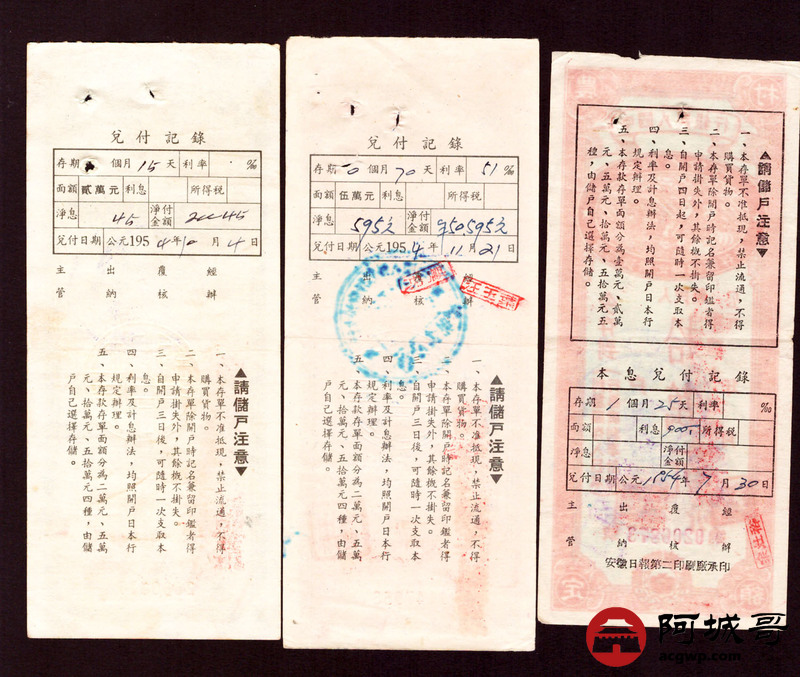 兌付記錄
存期 個月 15 天 利率 ‰
面額 貳萬元 利息 所得税
淨息 45 淨付金額 20045
兌付日期 公元195 4 年 10 月 4 日
主管 出納 覆核 經辦
▲請儲戶注意▼
一、本存單不准抵現，禁止流通，不得
購買貨物。
二、本存單除開戶時記名兼留印鑑者得
申請掛失外，其餘概不掛失。
三、自開戶三日後，可隨時一次支取本
息。
四、利率及計息辦法，均照開戶日本行
規定辦理。
五、本存款存單面額分為二萬元、五萬
元、拾萬元、五拾萬元四種，由儲
戶自己選擇存儲。
兌付記錄
存期 0 個月 70 天 利率 51 ‰
面額 伍萬元 利息 所得税
淨息 595元 淨付金額 50595元
兌付日期 公元195 4 年 11 月 21 日
主管 出納 覆核 經辦
▲請儲戶注意▼
一、本存單不准抵現，禁止流通，不得
購買貨物。
二、本存單除開戶時記名兼留印鑑者得
申請掛失外，其餘概不掛失。
三、自開戶三日後，可隨時一次支取本
息。
四、利率及計息辦法，均照開戶日本行
規定辦理。
五、本存款存單面額分為二萬元、五萬
元、拾萬元、五拾萬元四種，由儲
戶自己選擇存儲。
▲請儲戶注意▼
一、本存單不准抵現，禁止流通，不得
購買貨物。
二、本存單除開戶時記名兼留印鑑者得
申請掛失外，其餘概不掛失。
三、自開戶四日起，可隨時一次支取本
息。
四、利率及計息辦法，均照開戶日本行
規定辦理。
五、本存款存單面額分為壹萬元、貳萬
元、五萬元、拾萬元、五拾萬元五
種，由儲戶自己選擇存儲。
本息兌付記錄
存期 1 個月 25 天 利率 ‰
面額 利息 900 所得税
淨息 淨付金額
兌付日期 公元 1954 年 7 月 30 日
主管 出納 覆核 經辦
安徽日報第二印刷廠承印
阿城哥
acgwp.com